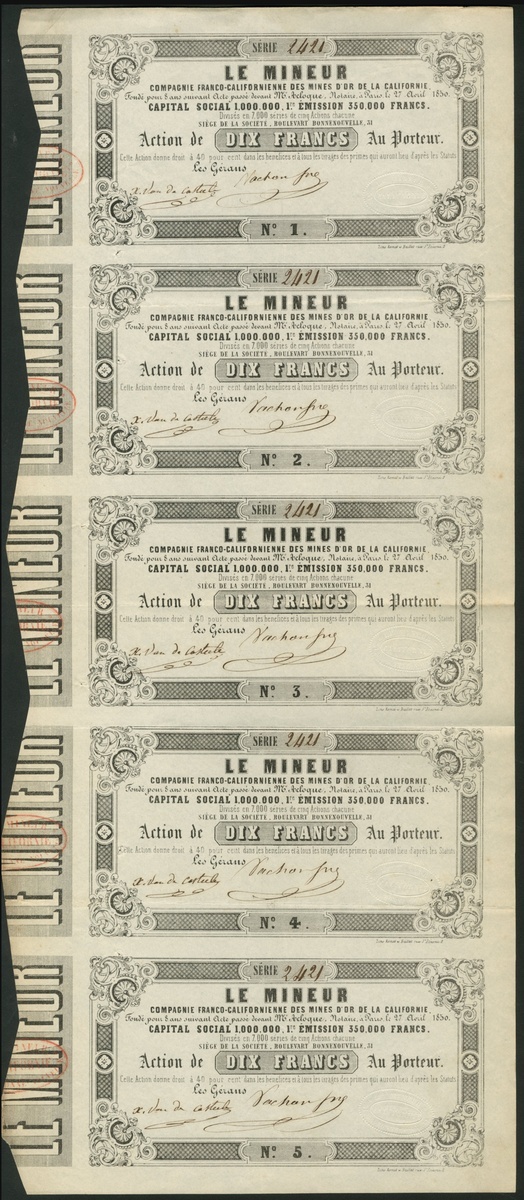 LE MINEUR
SÉRIE 2421
LE MINEUR
COMPAGNIE FRANCO-CALIFORNIENNE DES MINES D'OR DE LA CALIFORNIE.
Fondé pour 8 ans suivant Acte passé devant Mr. Acloque, Notaire, à Paris, le 27 Avril 1850.
CAPITAL SOCIAL 1,000,000, 1re ÉMISSION 350,000 FRANCS.
Divisés en 7,000 séries de cinq Actions chacune
SIÈGE DE LA SOCIÉTÉ, BOULEVART BONNENOUVELLE, 31
Action de DIX FRANCS Au Porteur.
Cette Action donne droit à 40 pour cent dans les bénéfices et à tous les tirages des primes qui auront lieu d'après les Statuts
Les Gérans
X. Van de Casteele Vachon frg
No. 1.
LE MINEUR
SÉRIE 2421
LE MINEUR
COMPAGNIE FRANCO-CALIFORNIENNE DES MINES D'OR DE LA CALIFORNIE
Fondé pour 8 ans suivant Acte passé devant Mr. Acloque, Notaire, à Paris, le 27 Avril 1850.
CAPITAL SOCIAL 1,000,000, 1re ÉMISSION 350,000 FRANCS.
Divisés en 7,000 séries de cinq Actions chacune
SIÈGE DE LA SOCIÉTÉ, BOULEVART BONNENOUVELLE, 31
Action de DIX FRANCS Au Porteur.
Cette Action donne droit à 40 pour cent dans les bénéfices et à tous les tirages des primes qui auront lieu d'après les Statuts
Les Gérans
X. Van de Casteele Vachon frg
No. 2.
LE MINEUR
SÉRIE 2421
LE MINEUR
COMPAGNIE FRANCO-CALIFORNIENNE DES MINES D'OR DE LA CALIFORNIE
Fondé pour 8 ans suivant Acte passé devant Mr. Acloque, Notaire, à Paris, le 27 Avril 1850.
CAPITAL SOCIAL 1,000,000, 1re ÉMISSION 350,000 FRANCS.
Divisés en 7,000 séries de cinq Actions chacune
SIÈGE DE LA SOCIÉTÉ, BOULEVART BONNENOUVELLE, 31
Action de DIX FRANCS Au Porteur.
Cette Action donne droit à 40 pour cent dans les bénéfices et à tous les tirages des primes qui auront lieu d'après les Statuts
Les Gérans
X. Van de Casteele Vachon frg
No. 3.
LE MINEUR
SÉRIE 2421
LE MINEUR
COMPAGNIE FRANCO-CALIFORNIENNE DES MINES D'OR DE LA CALIFORNIE
Fondé pour 8 ans suivant Acte passé devant Mr. Acloque, Notaire, à Paris, le 27 Avril 1850.
CAPITAL SOCIAL 1,000,000, 1re ÉMISSION 350,000 FRANCS.
Divisés en 7,000 séries de cinq Actions chacune
SIÈGE DE LA SOCIÉTÉ, BOULEVART BONNENOUVELLE, 31
Action de DIX FRANCS Au Porteur.
Cette Action donne droit à 40 pour cent dans les bénéfices et à tous les tirages des primes qui auront lieu d'après les Statuts
Les Gérans
X. Van de Casteele Vachon frg
No. 4.
LE MINEUR
SÉRIE 2421
LE MINEUR
COMPAGNIE FRANCO-CALIFORNIENNE DES MINES D'OR DE LA CALIFORNIE.
Fondé pour 8 ans suivant Acte passé devant Mr. Acloque, Notaire, à Paris, le 27 Avril 1850.
CAPITAL SOCIAL 1,000,000, 1re ÉMISSION 350,000 FRANCS.
Divisés en 7,000 séries de cinq Actions chacune
SIÈGE DE LA SOCIÉTÉ, BOULEVART BONNENOUVELLE, 31
Action de DIX FRANCS Au Porteur.
Cette Action donne droit à 40 pour cent dans les bénéfices et à tous les tirages des primes qui auront lieu d'après les Statuts
Les Gérans
X. Van de Casteele Vachon frg
No. 5.